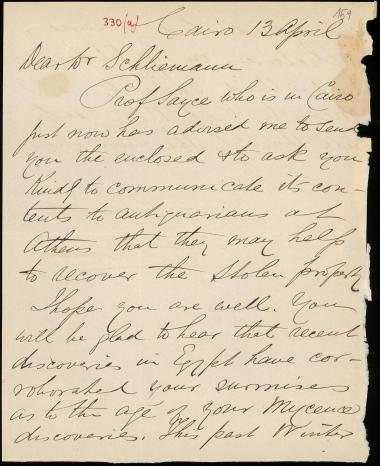 330(a)
159
Cairo 13 April
Dear Dr Schliemann
Prof Sayce who is in Cairo
just now has advised me to send
you the enclosed & to ask you
kindly to communicate its con-
tents to antiquarians at
Athens that they may help
to recover the stolen property
I hope you are well. You
will be glad to hear that recent
discoveries in Egypt have cor-
roborated your surmises
as to the age of your Mycenae
discoveries. This past Winter